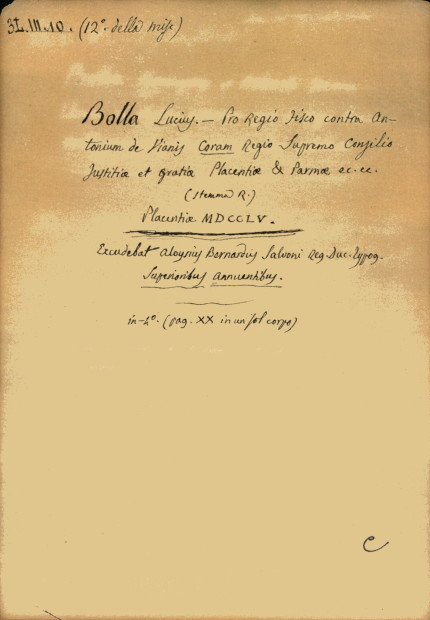 3L.III.10. (12°. della misc)
Bolla Lucius. — Pro Regio Fisco contra An-
tonium de Vianis Coram Regio Supremo Consilio
Justitiæ et gratiæ Placentiæ & Parmæ ec. ec.
(Stemma R.)
Placentiæ MDCCLV.
Excudebat Aloysius Bernardus Salvoni Reg. Duc. Typog.
Superioribus Annuentibus.
in-4°. (pag. XX in un sol corpo)
C